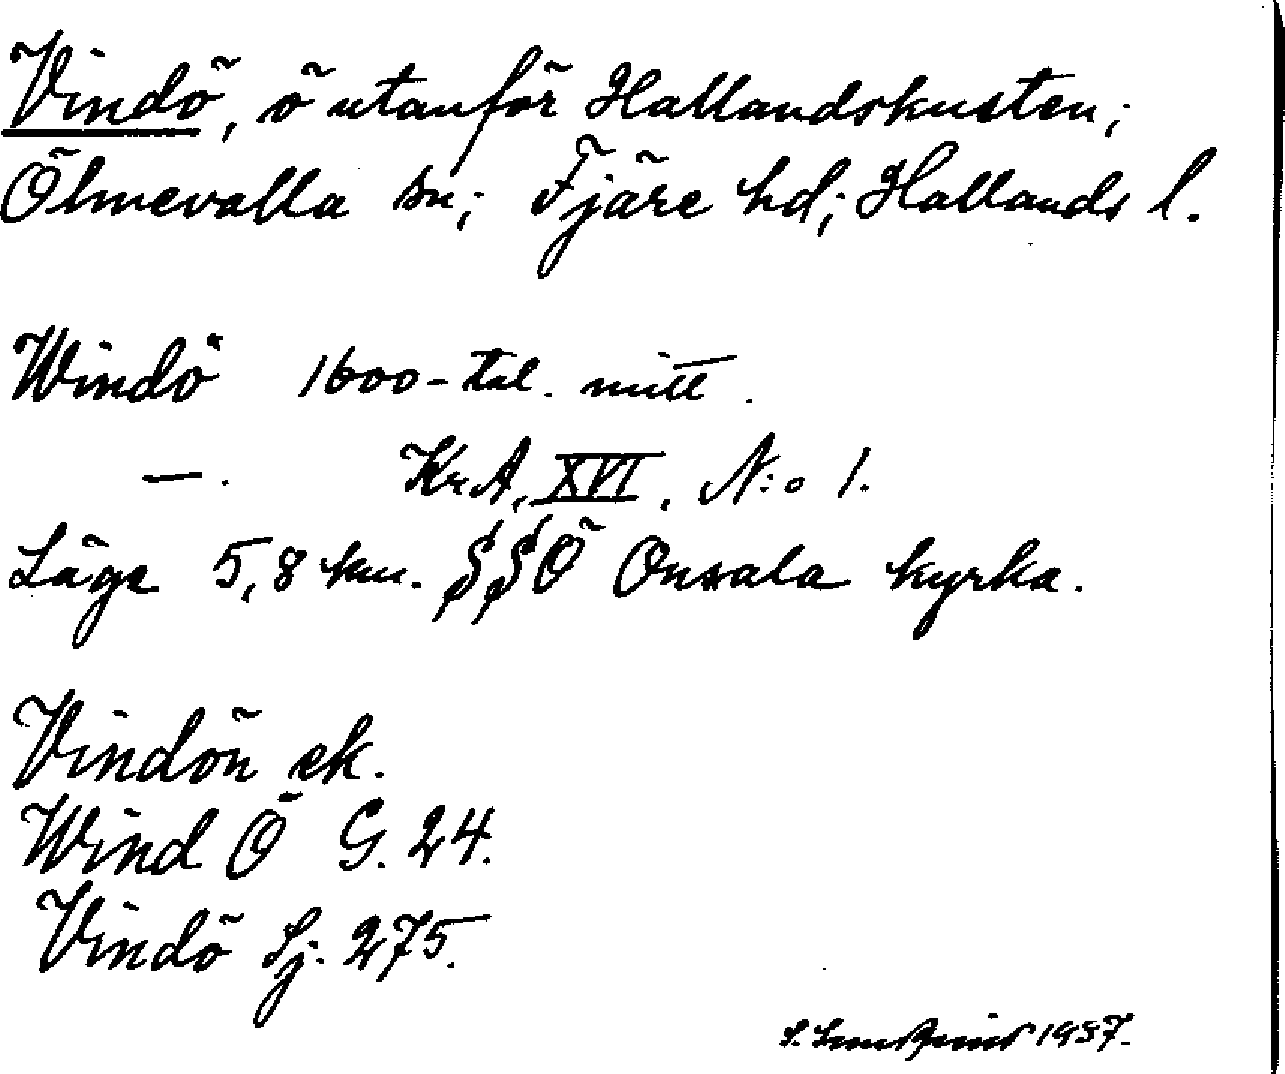 Vindö, ö utanför Hallandskusten;
Ölmevalla sn; Fjäre hd; Hallands l.
Windö 1600-tal. mitt.
—. KrA, XVI, N:o 1.
Läge 5,8 km. SSÖ Onsala kyrka.
Vindön ek.
Wind Ö G. 24.
Vindö Sj. 275.
S. 1937.